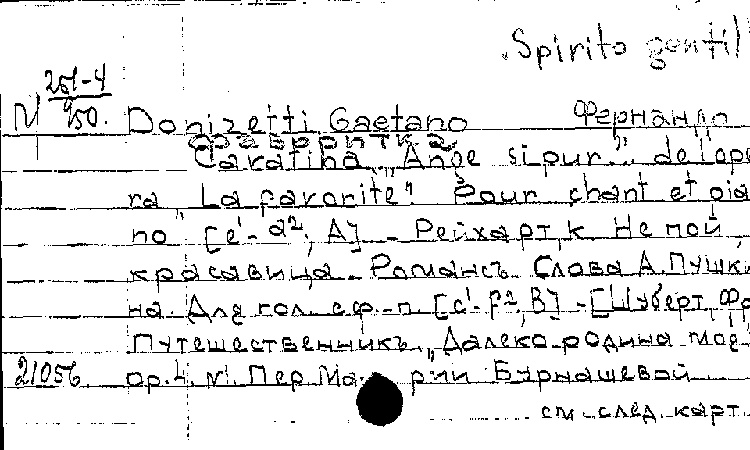 „Spirito gentil"
251-4
N 950. Donizetti Gaetano Фернандо
фаворитка
Cavatina „Ange si pur" de l'ope
ra „La favorite". Pour chant et pia
no [e'-a², A] - Рейхарт, К. Не пой,
красавица. Романсъ. Слова А. Пушки
на. Для гол. с ф.-п. [c'-f², B] - [Шуберт, Фр
Путешественникъ „Далеко родина моя
21056 op. 4, N1. Пер. Марии Бурнашевой
см. след. карт.